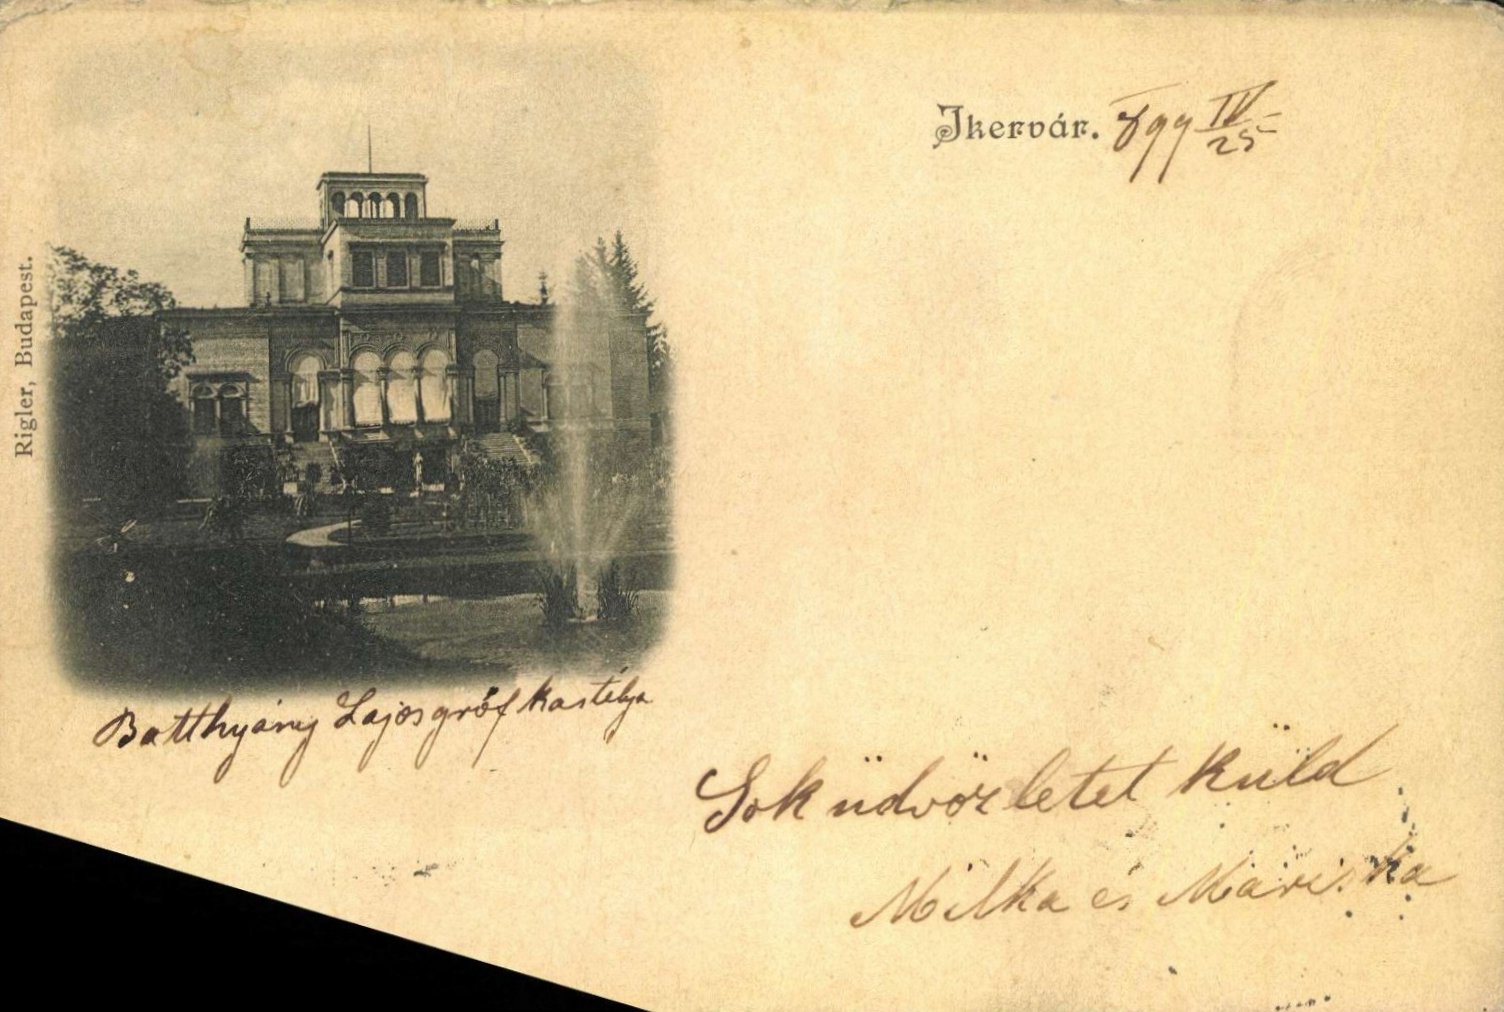 Ikervár. 899 IV/25
Rigler, Budapest.
Batthyány Lajos gróf kastélya
Sok üdvözletet küld
Milka és Mariska